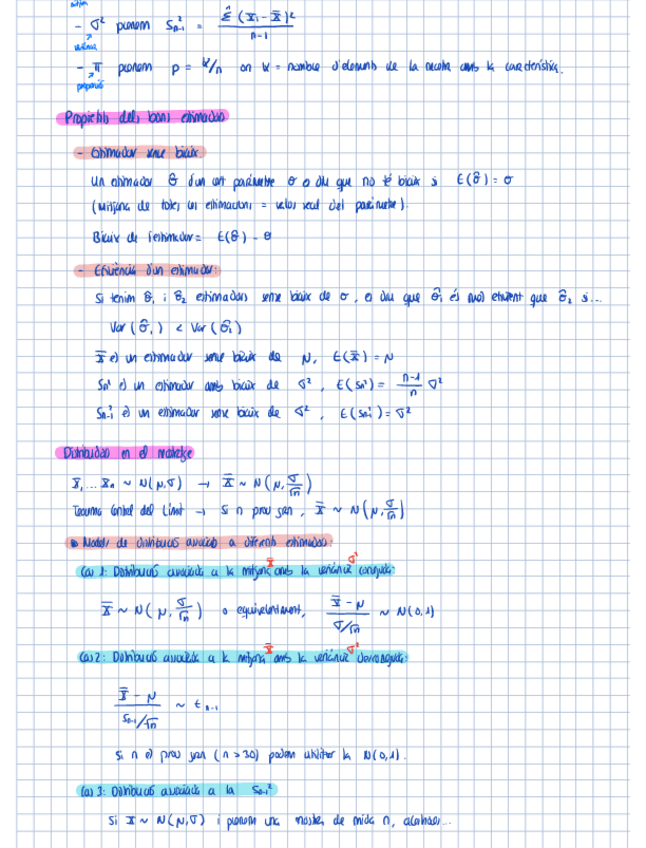 - σ² prenem S²ₙ₋₁ = Σ (xᵢ - x̄)² / n-1
variància
- π prenem p = k/n on k = nombre d'elements de la mostra amb la característica.
proporció
Propietats dels bons estimadors
- Estimador sense biaix:
Un estimador θ̂ d'un cert paràmetre θ es diu que no té biaix si E(θ̂) = θ
(mitjana de totes les estimacions = valor real del paràmetre).
Biaix de l'estimador = E(θ̂) - θ
- Eficiència d'un estimador:
Si tenim θ̂₁ i θ̂₂ estimadors sense biaix de θ, es diu que θ̂₁ és més eficient que θ̂₂ si...
Var(θ̂₁) < Var(θ̂₂)
x̄ és un estimador sense biaix de μ, E(x̄) = μ
Sn² és un estimador amb biaix de σ², E(Sn²) = n-1/n σ²
S²ₙ₋₁ és un estimador sense biaix de σ², E(S²ₙ₋₁) = σ²
Distribucions en el mostratge
x₁...xₙ ~ N(μ,σ) → x̄ ~ N(μ, σ/√n)
Teorema Central del Límit → Si n prou gran, x̄ ~ N(μ, σ/√n)
Models de distribució associats a diferents estimadors:
Cas 1: Distribució associada a la mitjana x̄ amb la variància σ² coneguda:
x̄ ~ N(μ, σ/√n) o equivalentment, x̄ - μ / σ/√n ~ N(0,1)
Cas 2: Distribució associada a la mitjana x̄ amb la variància σ² desconeguda:
x̄ - μ / Sₙ₋₁/√n ~ tₙ₋₁
Si n és prou gran (n > 30) podem utilitzar la N(0,1).
Cas 3: Distribució associada a la S²ₙ₋₁
Si x ~ N(μ,σ) i prenem una mostra de mida n, aleshores...